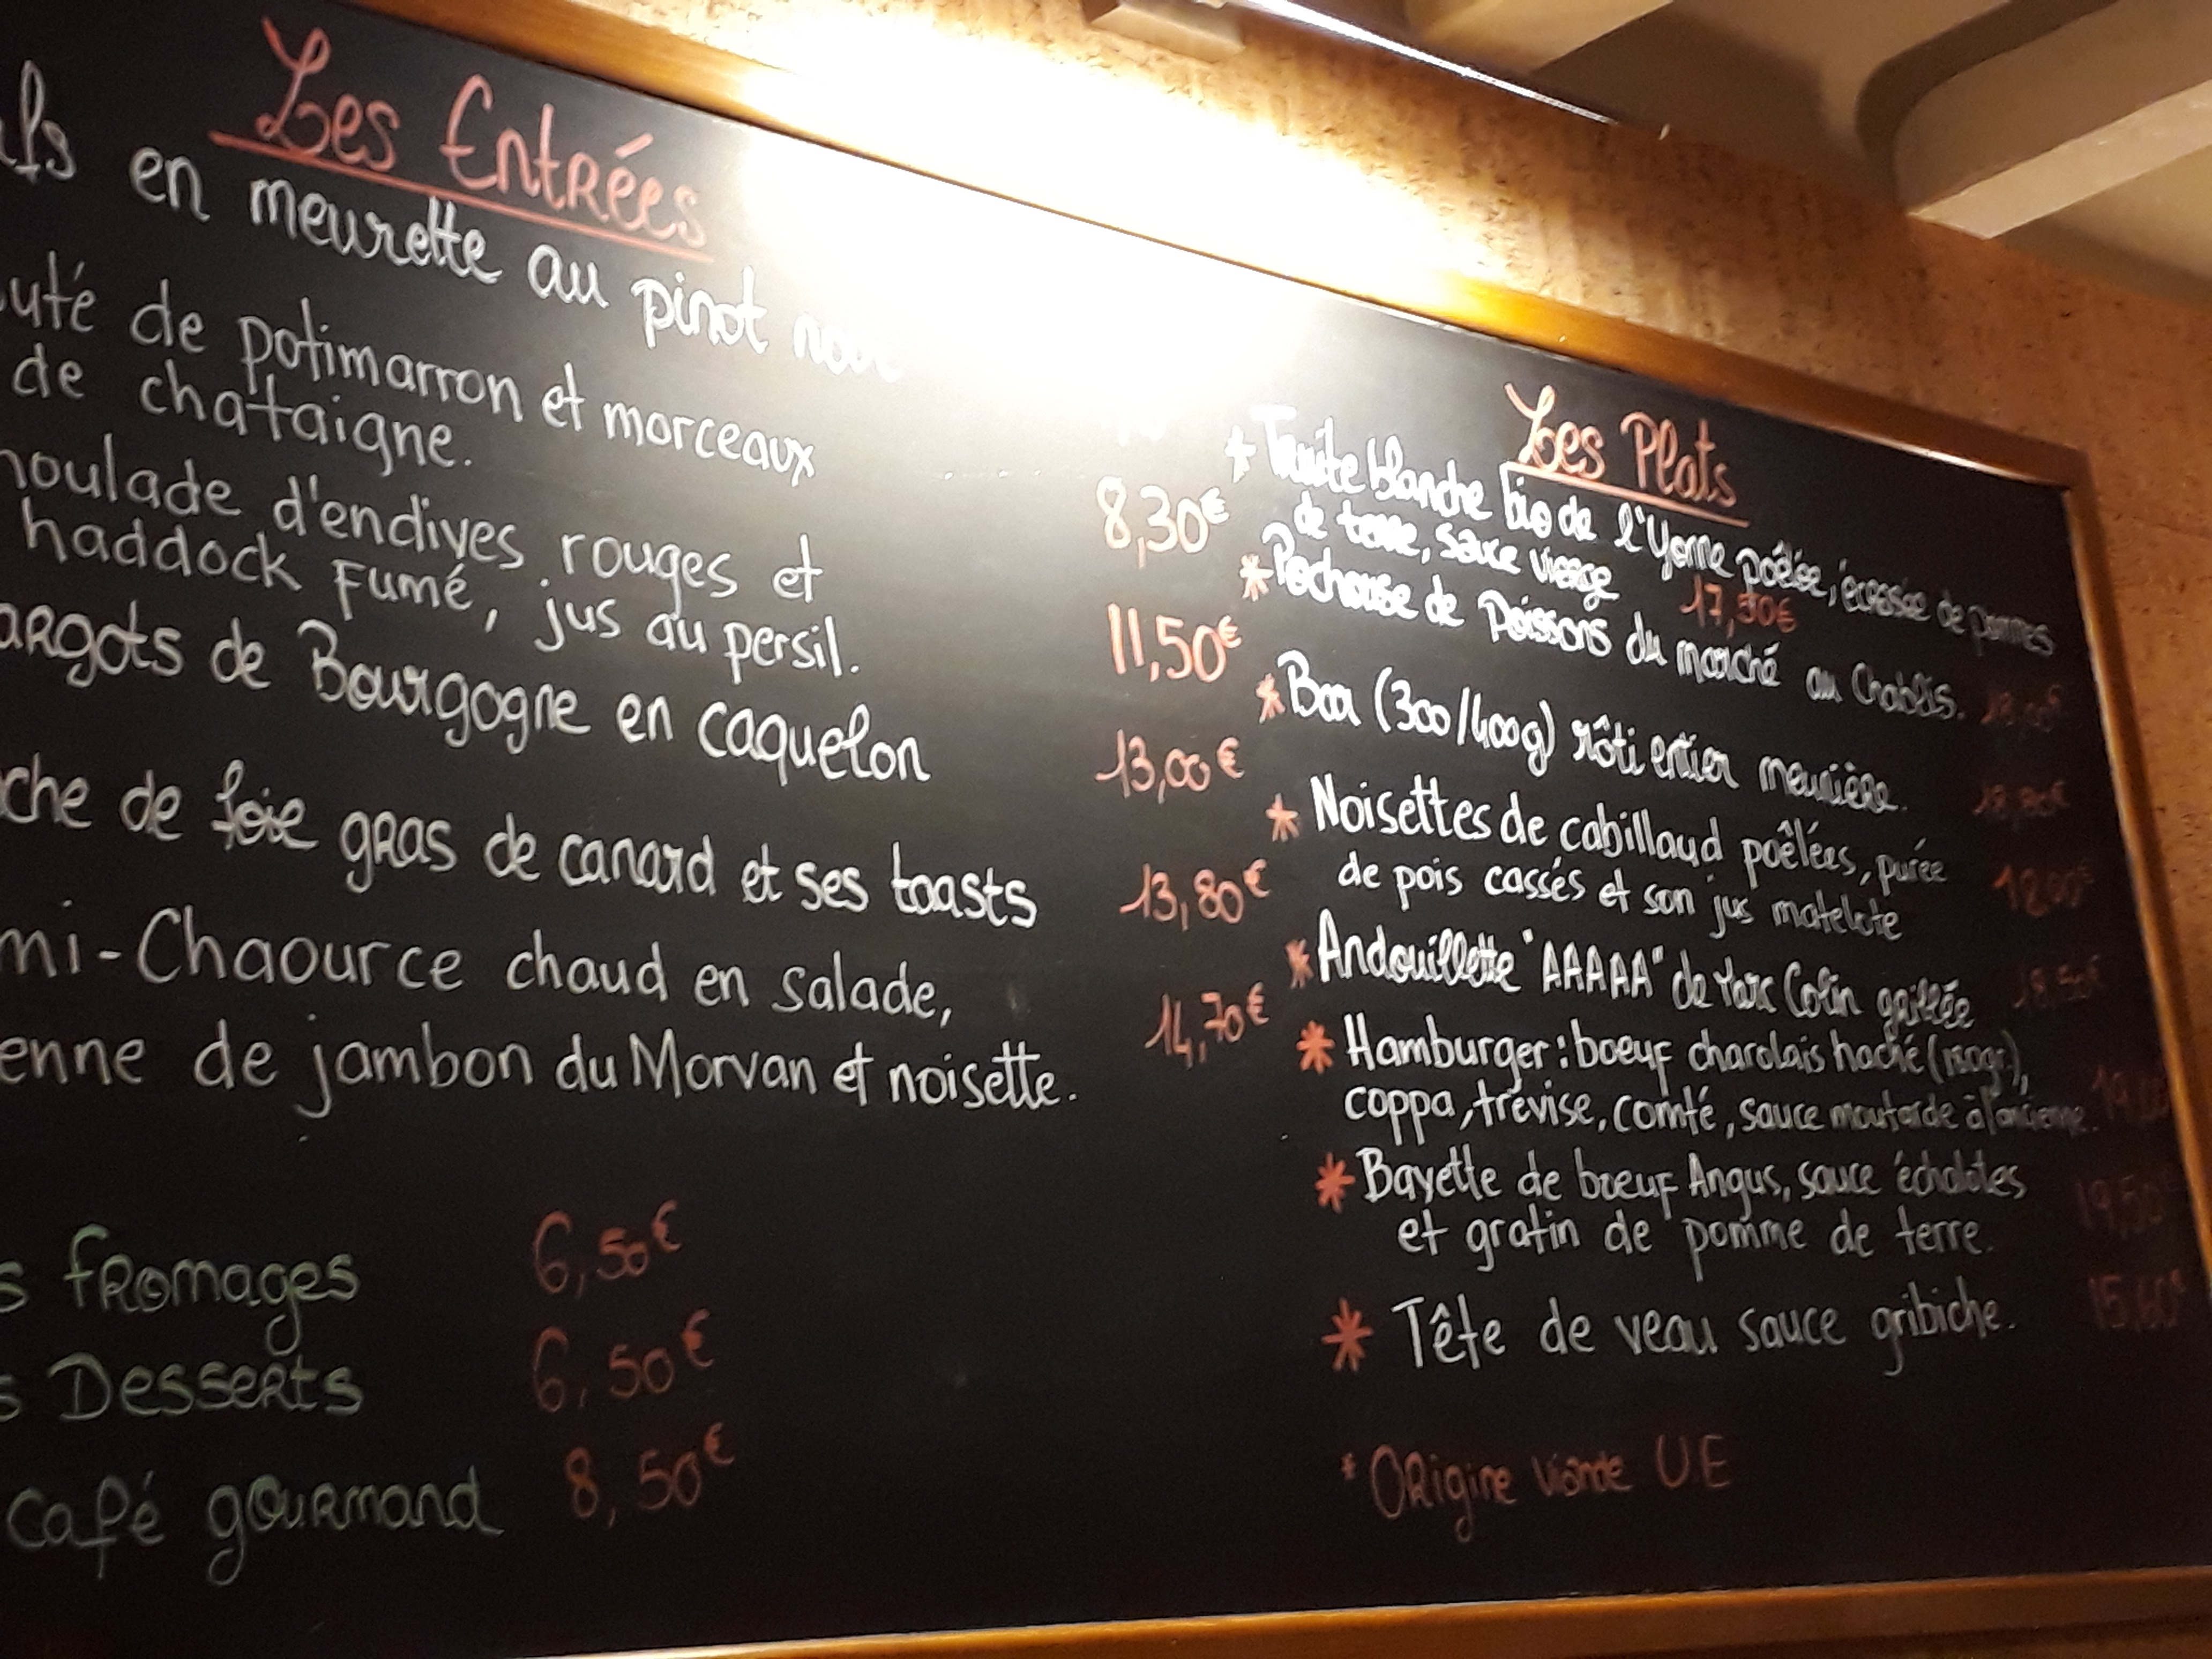 Les Entrées
en meurette au pinot noir
de potimarron et morceaux
de chataigne.
8,30€
d'endives rouges et
haddock Fumé, jus au persil.
11,50€
de Bourgogne en caquelon
13,00€
de foie gras de canard et ses toasts
13,80€
mi-Chaource chaud en salade,
14,70€
enne de jambon du Morvan et noisette.
fromages 6,50€
Desserts 6,50€
Café gourmand 8,50€
Les Plats
* Truite blanche bio de l'Yonne poêlée, écrasée de pommes
de terre, sauce vierge 17,50€
* Pochouse de Poissons du marché au Chablis.
* Bar (300/400g) rôti entier meunière.
* Noisettes de cabillaud poêlées, purée
de pois cassés et son jus matelote 18,00€
* Andouillette "AAAAA" de Colin grillée 18,50€
* Hamburger: boeuf charolais haché
coppa, trévise, comté, sauce moutarde à l'ancienne.
* Bavette de boeuf Angus, sauce échalotes 19,50
et gratin de pomme de terre.
* Tête de veau sauce gribiche. 15,60€
* Origine viande U.E